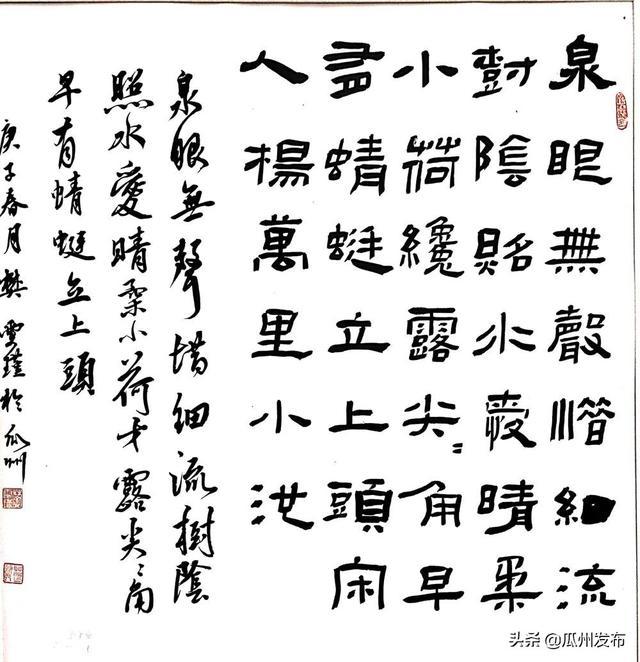 泉眼無聲惜細流
樹陰照水愛晴柔
小荷纔露尖〻角早
有蜻蜓立上頭宋
人楊萬里小池
泉眼無聲惜細流樹陰
照水愛晴柔小荷才露尖〻角
早有蜻蜓立上頭
庚子春月樊雲瑾於瓜州
头条 @瓜州发布